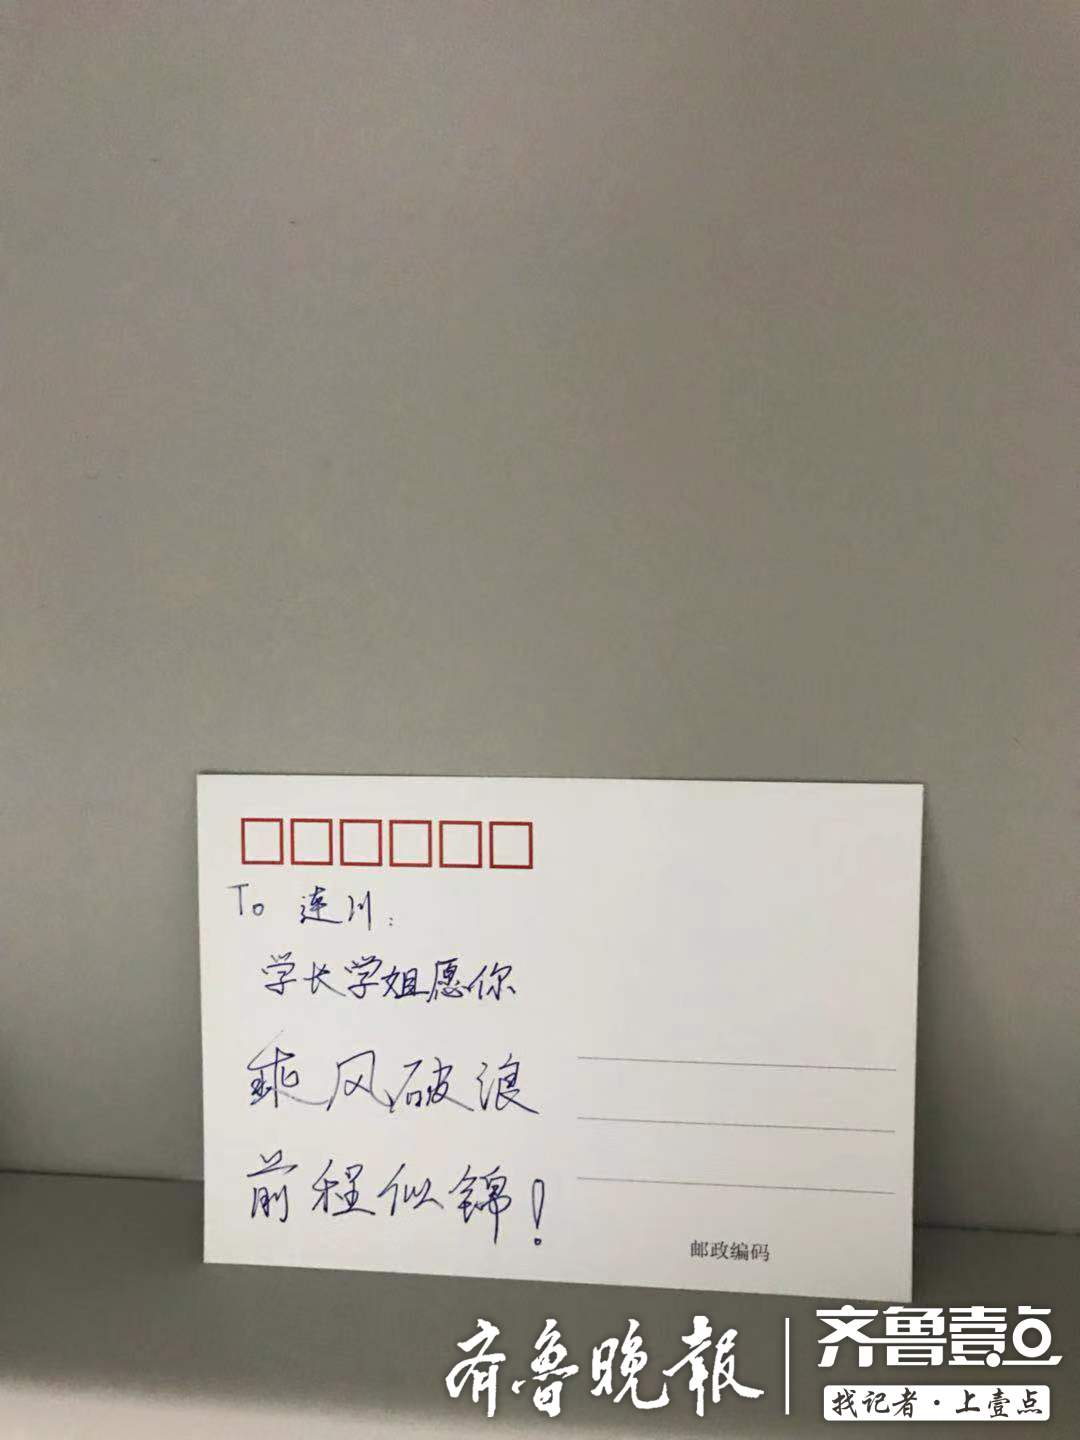 To 莲川:
学长学姐愿你
乘风破浪
前程似锦!
邮政编码
齐鲁晚報
齐鲁壹点
找记者·上壹点